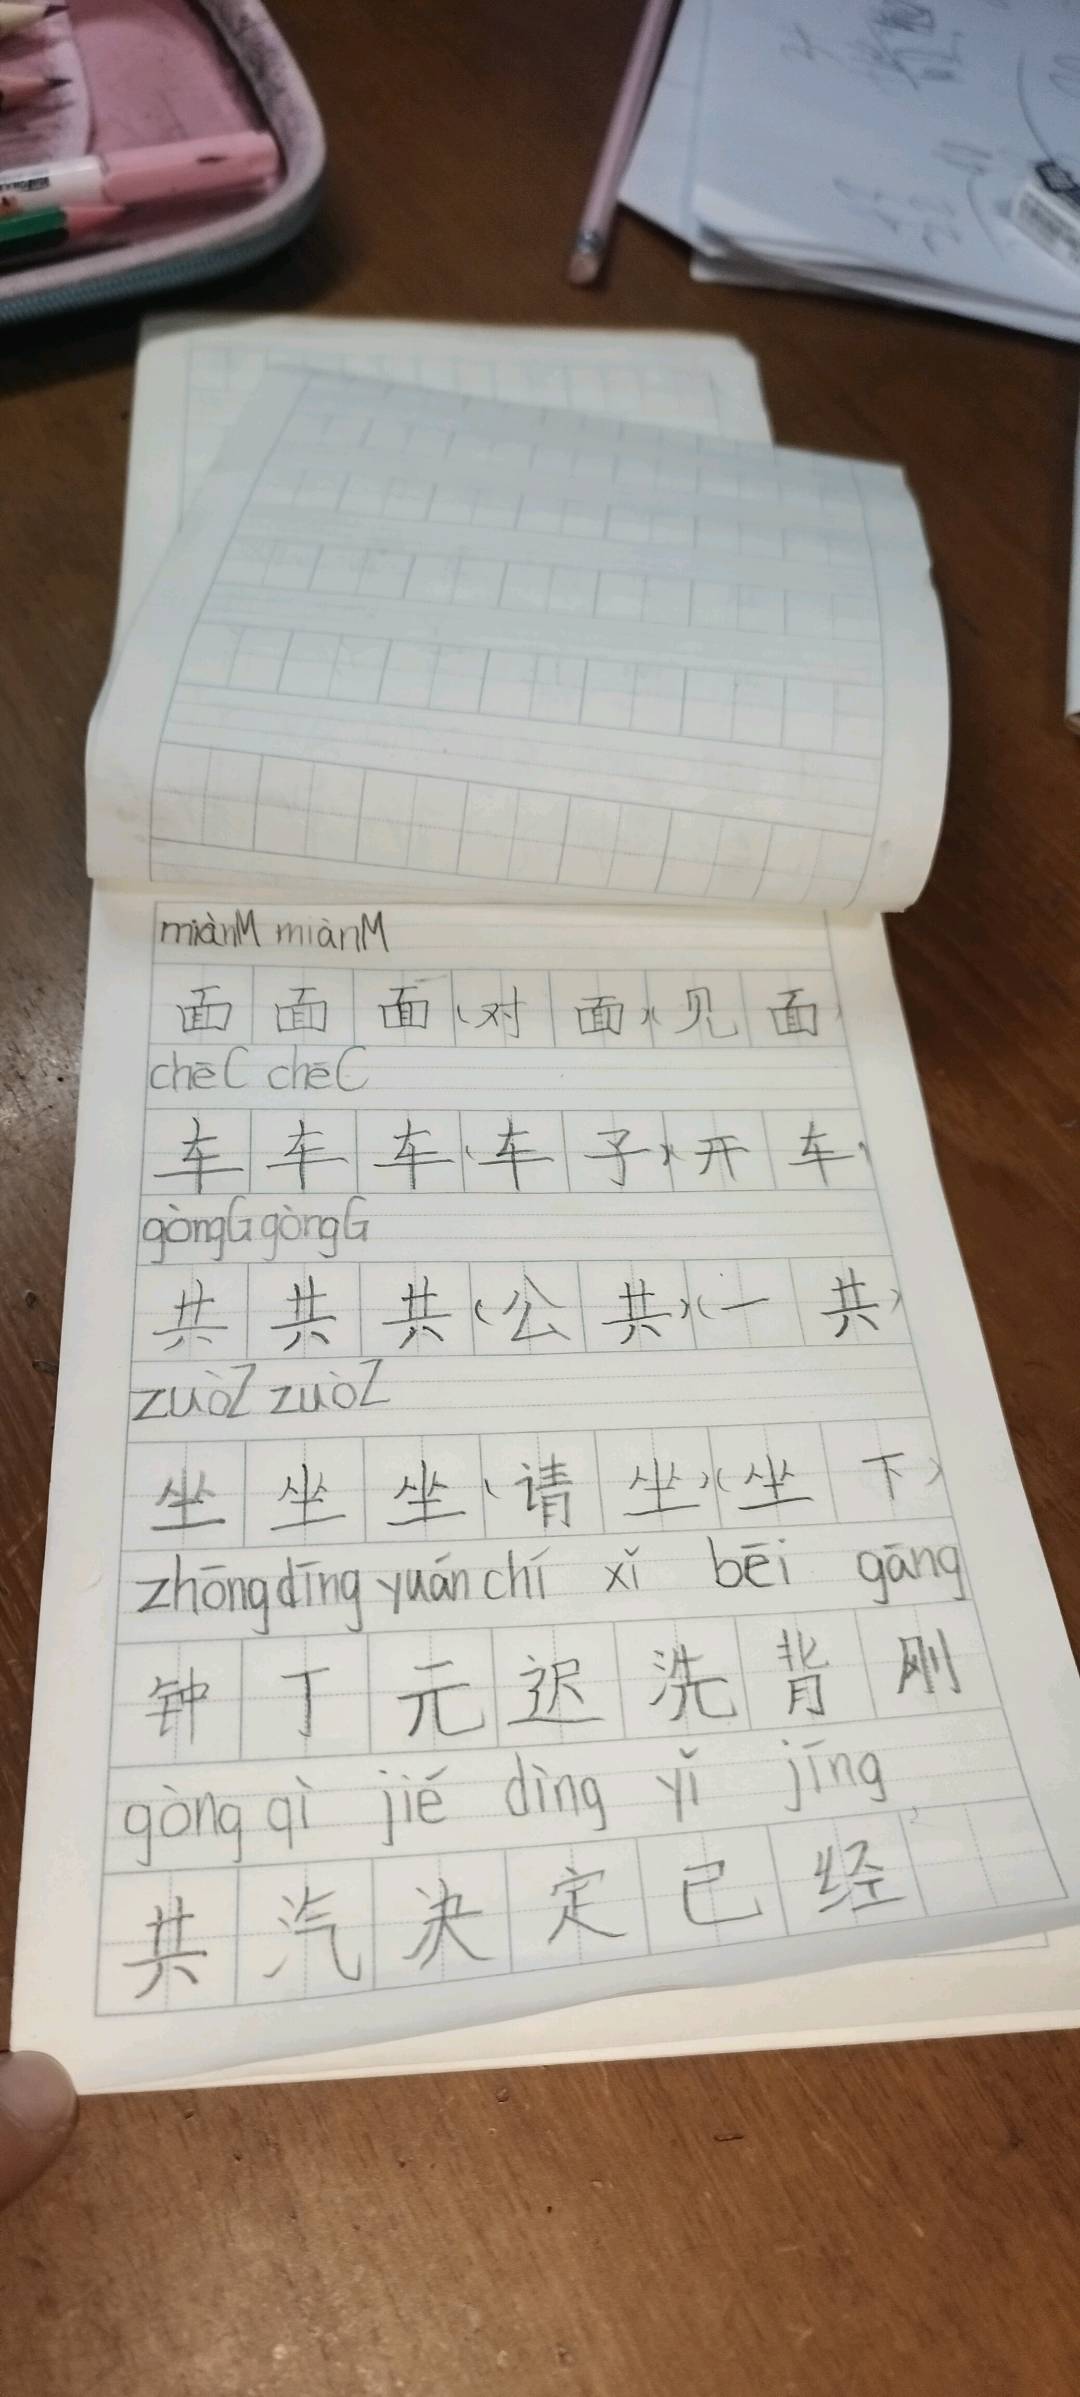 miànM miànM
面 面 面 (对 面)(见 面)
chēC chēC
车 车 车 (车 子)(开 车)
gòngG gòngG
共 共 共 (公 共)(一 共)
zuòZ zuòZ
坐 坐 坐 (请 坐)(坐 下)
zhōng dīng yuán chí xǐ bēi gāng
钟 丁 元 迟 洗 背 刚
gòng qì jié dìng yǐ jīng
共 汽 决 定 已 经